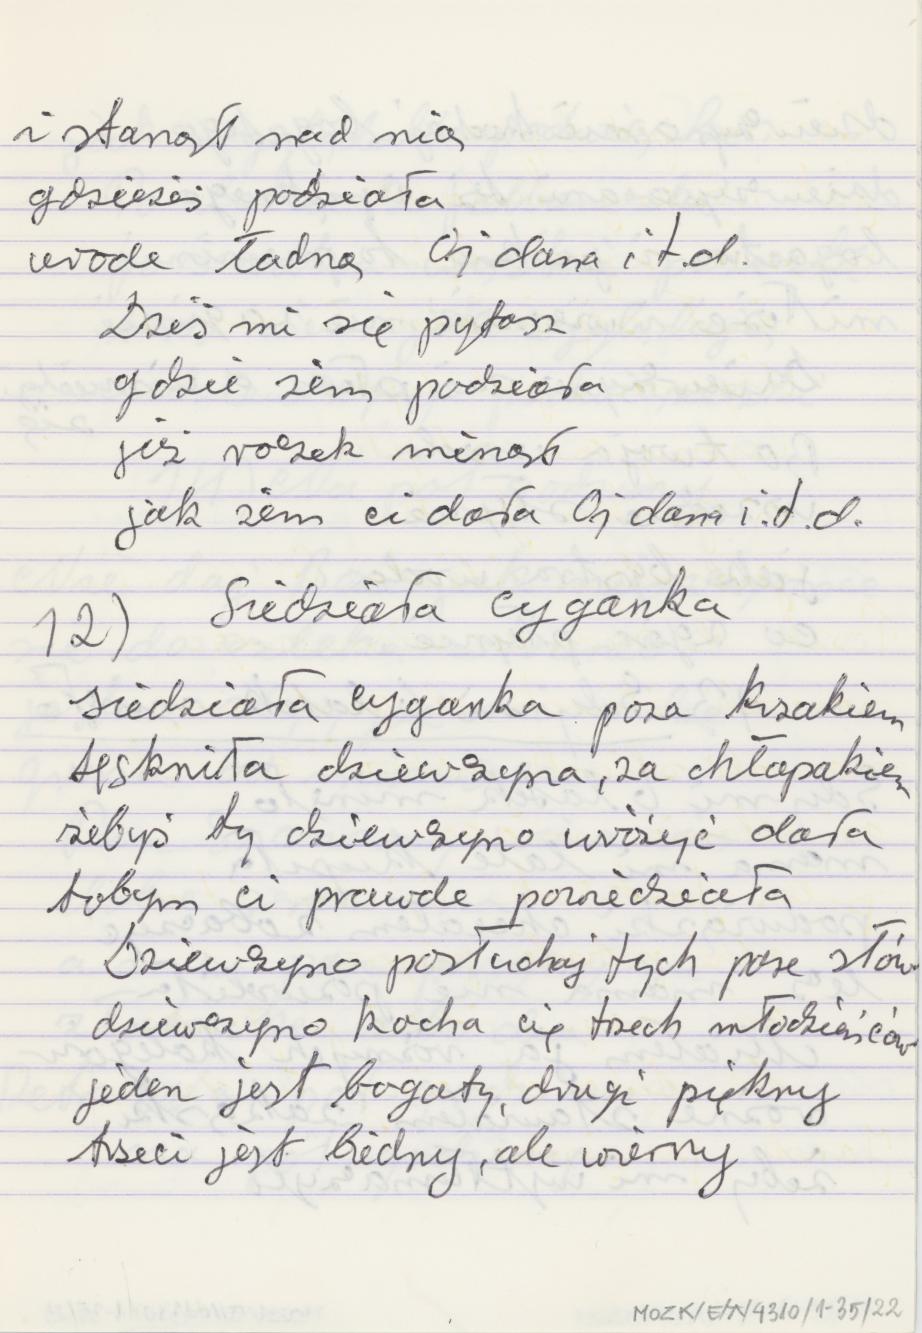 i stanoł nad nią
gdzieżeś podziała
urode ładną Oj dana i t.d.
Dziś mi się pytosz
gdzie żem podziała
już roczek minoł
jak żem ci dała Oj dana i.t.d.
12) Siedziała cyganka
Siedziała cyganka poza krzakiem
tęskniła dziewczyna, za chłopakiem
żebyś ty dziewczyno wróżyć dała
tobym ci prawde powiedziała
Dziewczyno posłuchaj tych pare słów
dziewczyno kocha cię trzech młodzieńców
jeden jest bogaty, drugi piękny
trzeci jest biedny, ale wierny
MOZK/E/A/4310/1-35/22